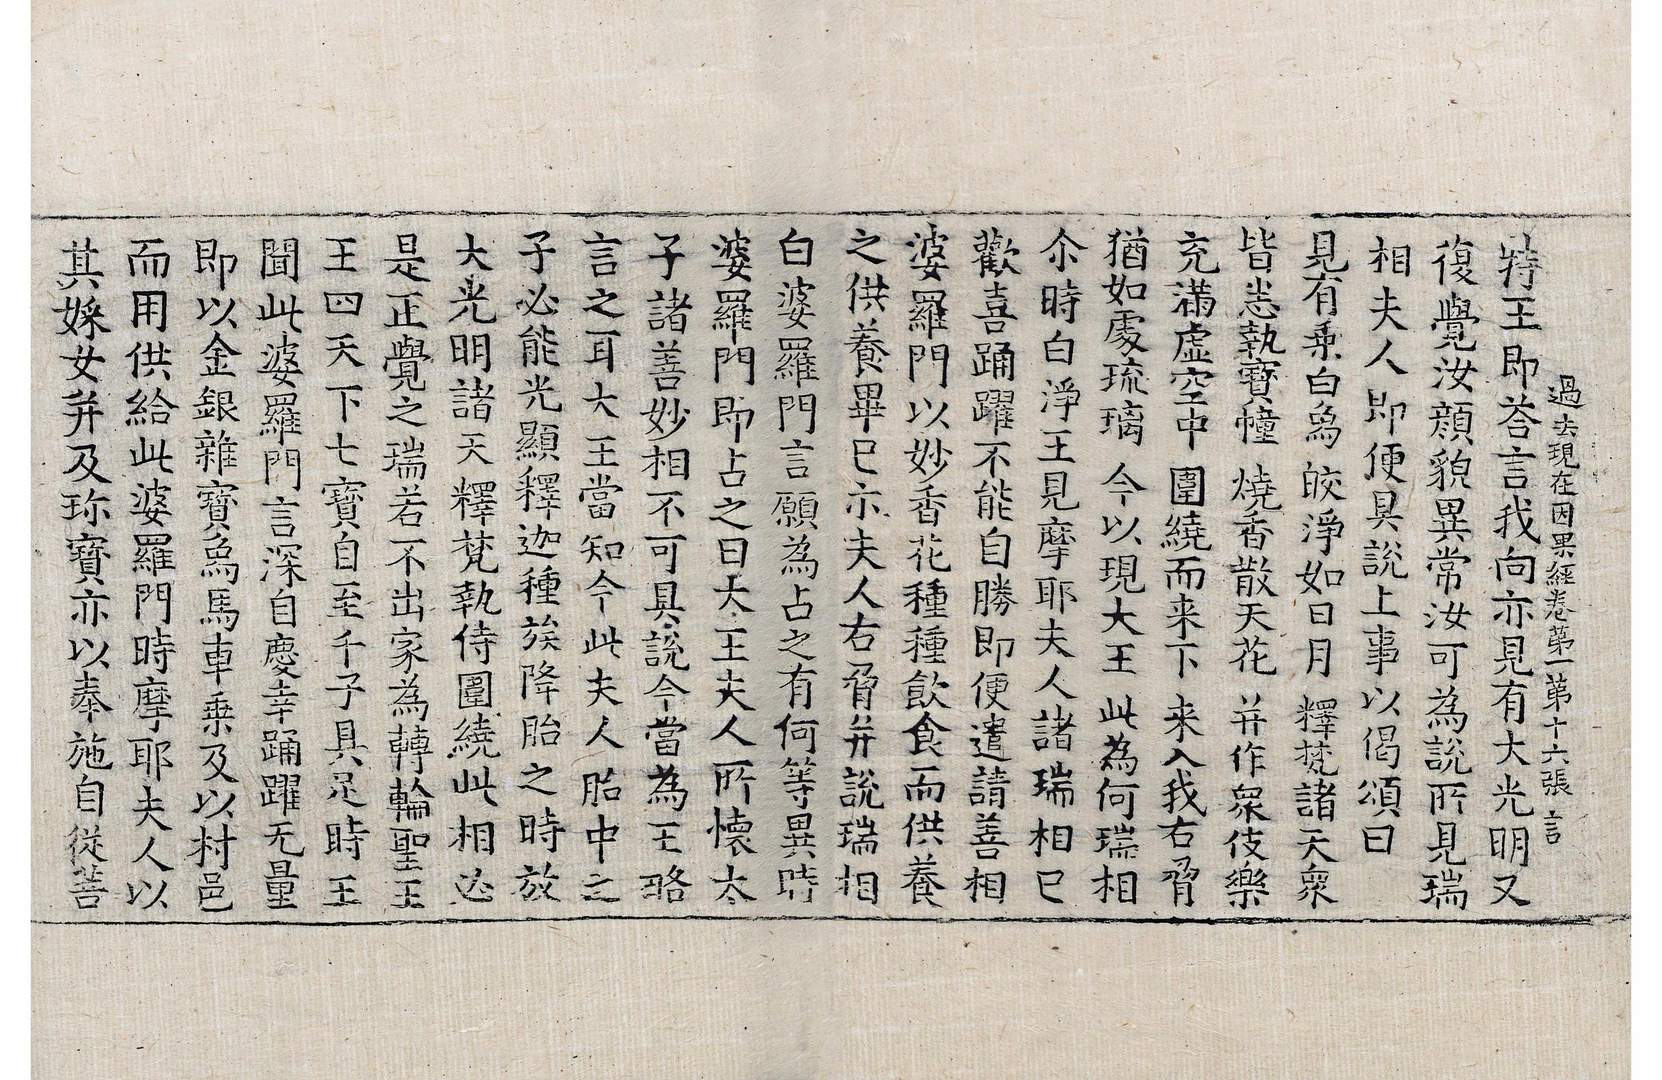 過去現在因果經卷第一第十六張 言
特王即荅言我向亦見有大光明又
復覺汝顔貌異常汝可為說所見瑞
相夫人即便具說上事以偈頌曰
見有乘白象 皎淨如日月 釋梵諸天衆
皆悉執寶幢 燒香散天花 并作衆伎樂
充滿虛空中 圍繞而来下 来入我右脅
猶如處琉璃 今以現大王 此為何瑞相
尒時白淨王見摩耶夫人諸瑞相已
歡喜踊躍不能自勝即便遣請善相
婆羅門以妙香花種種飲食而供養
之供養畢已示夫人右脅并說瑞相
白婆羅門言願為占之有何等異時
婆羅門即占之曰大王夫人所懐太
子諸善妙相不可具說今當為王略
言之耳大王當知今此夫人胎中之
子必能光顯釋迦種族降胎之時放
大光明諸天釋梵執侍圍繞此相必
是正覺之瑞若不出家為轉輪聖王
王四天下七寶自至千子具足時王
聞此婆羅門言深自慶幸踊躍无量
即以金銀雜寶象馬車乘及以村邑
而用供給此婆羅門時摩耶夫人以
其婇女并及珎寶亦以奉施自從菩